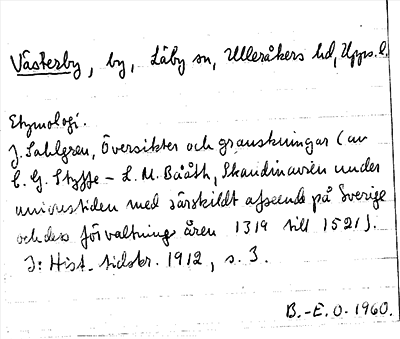 Västerby, by, Läby sn, Ulleråkers hd, Upps. l.
Etymologi.
J. Sahlgren, Översikter och granskningar (av
C. G. Styffe – L. M. Bååth, Skandinavien under
unionstiden med särskildt afseende på Sverige
och dess förvaltning åren 1319 till 1521).
I: Hist. tidskr. 1912, s. 3.
B.-E. O. 1960.